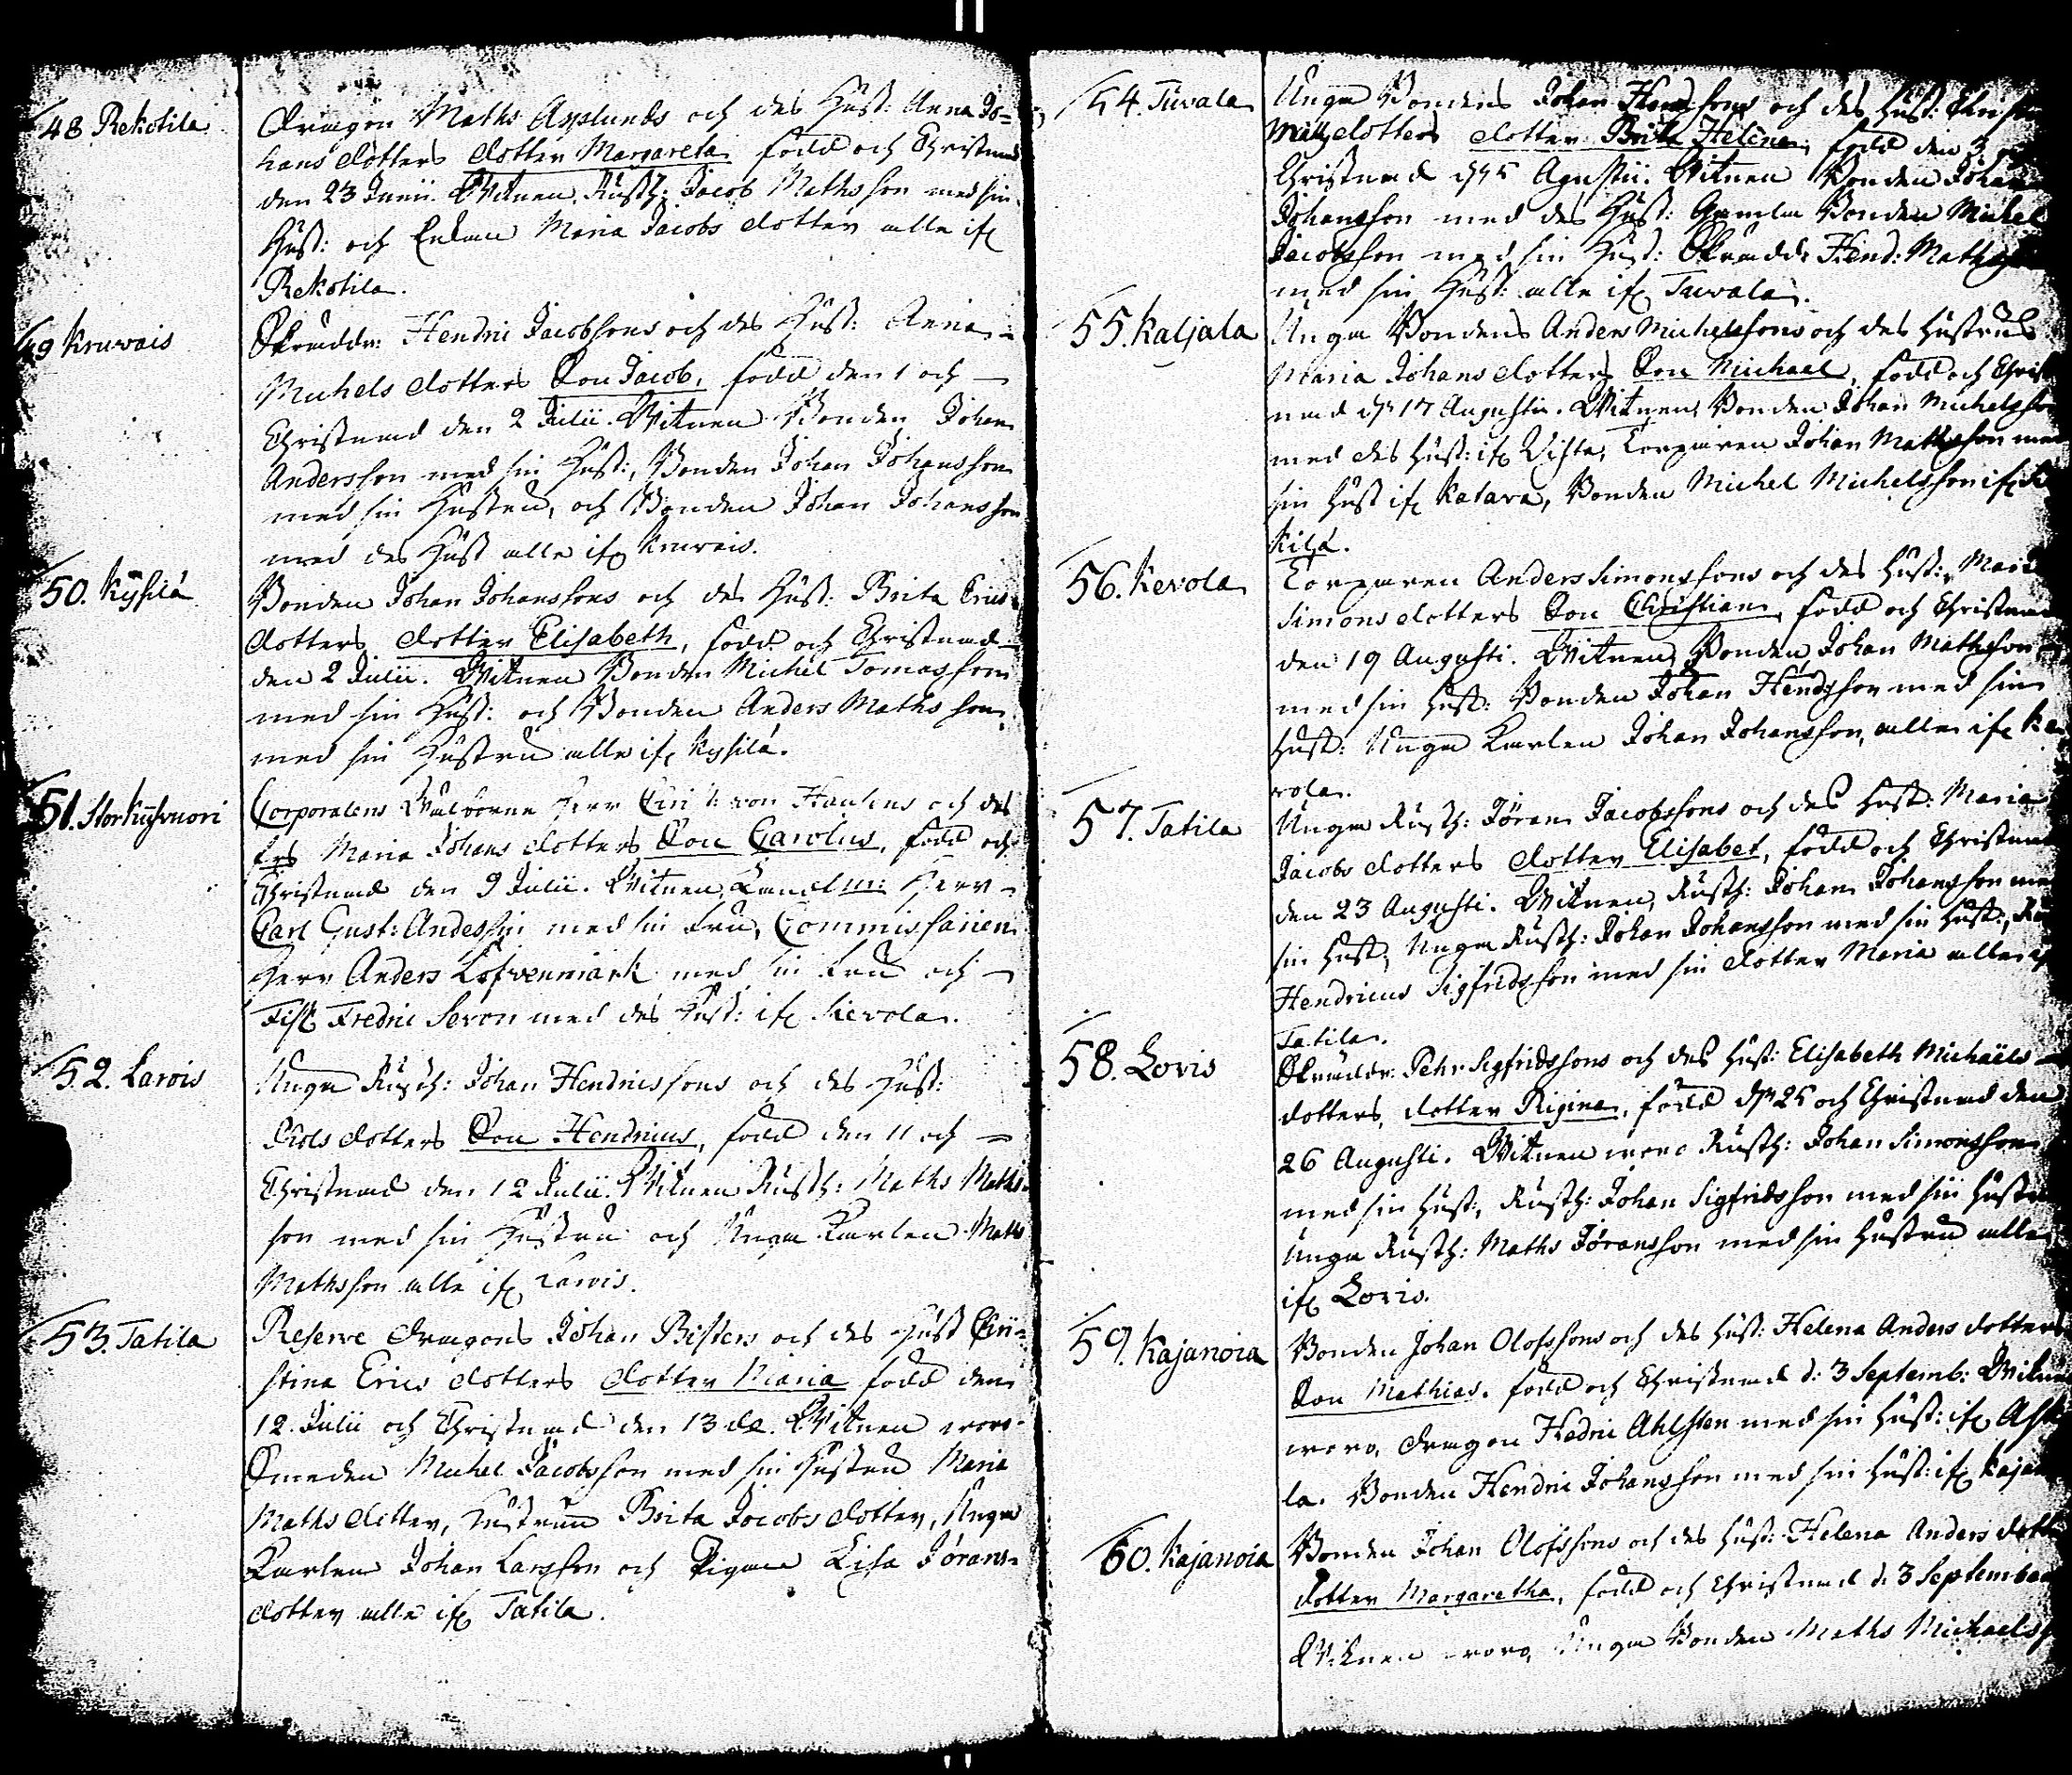 48 Rekotila
Dragon Maths Asplunds och des Hust: Anna Jo=
hans dotters dotter Margareta född och Christnad
den 23 Junii. Witnen, Rusth: Jacob Mathsson med sin
Hust: och Enkan Maria Jacobs dotter alle if
Rekotila.
49 Kruvais
Skräddr: Hendric Jacobssons och des Hust: Anna
Michels dotters Son Jacob, född den 1 och
Christnad den 2 Julii. Witnen Bonden Johan
Andersson med sin Hust:, Bonden Johan Johansson
med sin Hustru, och Bonden Johan Johansson
med des Hust alle if Kruvais.
50. Kÿsilä
Bonden Johan Johanssons och des Hust: Brita Erics
dotters dotter Elisabeth, född och Christnad
den 2 Julii. Witnen Bonden Michel Tomasson
med sin Hust: och Bonden Anders Mathsson
med sin Hustru alle if Kysilä.
51. Storkuhvuori
Corporalens Wälborne Herr von och des
Maria Johans dotters Son Carolus, född och
Christnad den 9 Julii. Witnen, Herr
Carl Gust: med sin Fru, Commissarien
Herr Anders Löfvenmark med sin Fru och
Fredric Seron med des Hust: if Sievola.
52. Larvis
Unga Rusth: Johan Hendricssons och des Hust:
dotters Son Hendricus, född den 11 och
Christnad den 12 Julii. Witnen Rusth: Maths Maths=
son med sin Hustru och Unga Karlen Maths
Mathsson alle if Larvis.
53. Tatila
Reserve Dragons Johan Bisters och des Hust Cri=
stina Erics dotters dotter Maria född den
12. Julii och Christnad den 13 de. Witnen woro
Smeden Michel Jacobsson med sin Hustru Maria
Maths dotter, Hustrun Brita Jacobs dotter, Unga
Karlen Johan Larsson och Pigan Lisa Jörans=
dotter alle if Tatila.
54. Tuvala
Unga Bondens Johan Hendssons och des Hust:
Mattsdotters dotter Brita Helena, född den 3
Christnad d. 5 Agustii. Witnen Bonden Johan
Johansson med des Hust: Gamla Bonden Michel
Jacobsson med sin Hust: Skrädde Hend: Maths
med sin Hust: alle if Tuvala.
55. Kaljala
Unga Bondens Anders Michelssons och des Hustrus
Maria Johans dotters Son Michael, född och Christ
nad dn 17 Augusti. Witnen, Bonden Johan Michelsson
med des Hust: if Vista, Torparen Johan Mathsson med
sin Hust if Katara, Bonden Michel Michelsson if
kilä.
56. Kevola
Torparen Anders Simonssons och des Hust: Maria
Simons dotters Son Christian, född och Christnad
den 19 Augusti. Witnen, Bonden Johan Mathsson
med sin Hust: Bonden Johan Hendsson med sin
Hust: Unga Karlen Johan Johansson, alle if Ke
vola.
57. Tatila
Unga Rusth: Jöran Jacobssons och des Hust: Maria
Jacobs dotters dotter Elisabet, född och Christnad
den 23 Augusti. Witnen, Rusth: Johan Johansson med
sin Hust, Unga Rusth: Johan Johansson med sin Hust:,
Hendricus Sigfridsson med sin dotter Maria alle if
Tatila.
58. Lovis
Skräddr: Pehr Sigfridssons och des Hust: Elisabeth Michaëls
dotters, dotter Rigina, född dn 25 och Christnad den
26 Augusti. Witnen woro Rusth: Johan Simonsson
med sin Hust:, Rusth: Johan Sigfridsson med sin Hustru
Unga Rusth: Maths Jöransson med sin Hustru alle
if Lovis.
59. Kajanoia
Bonden Johan Olofssons och des Hust: Helena Anders dotters
Son Mathias. född och Christnad d: 3 Septemb: Witnen
woro, Dragon Hedric Ahlsten med sin Hust: if
la. Bonden Hendric Johansson med sin Hust: if Kajan
60. Kajanoia
Bonden Johan Olofssons och des Hust: Helena Anders dotters
dotter Margaretha, född och Christnad d. 3 September
Witnen woro, Unga Bonden Maths Michaelss